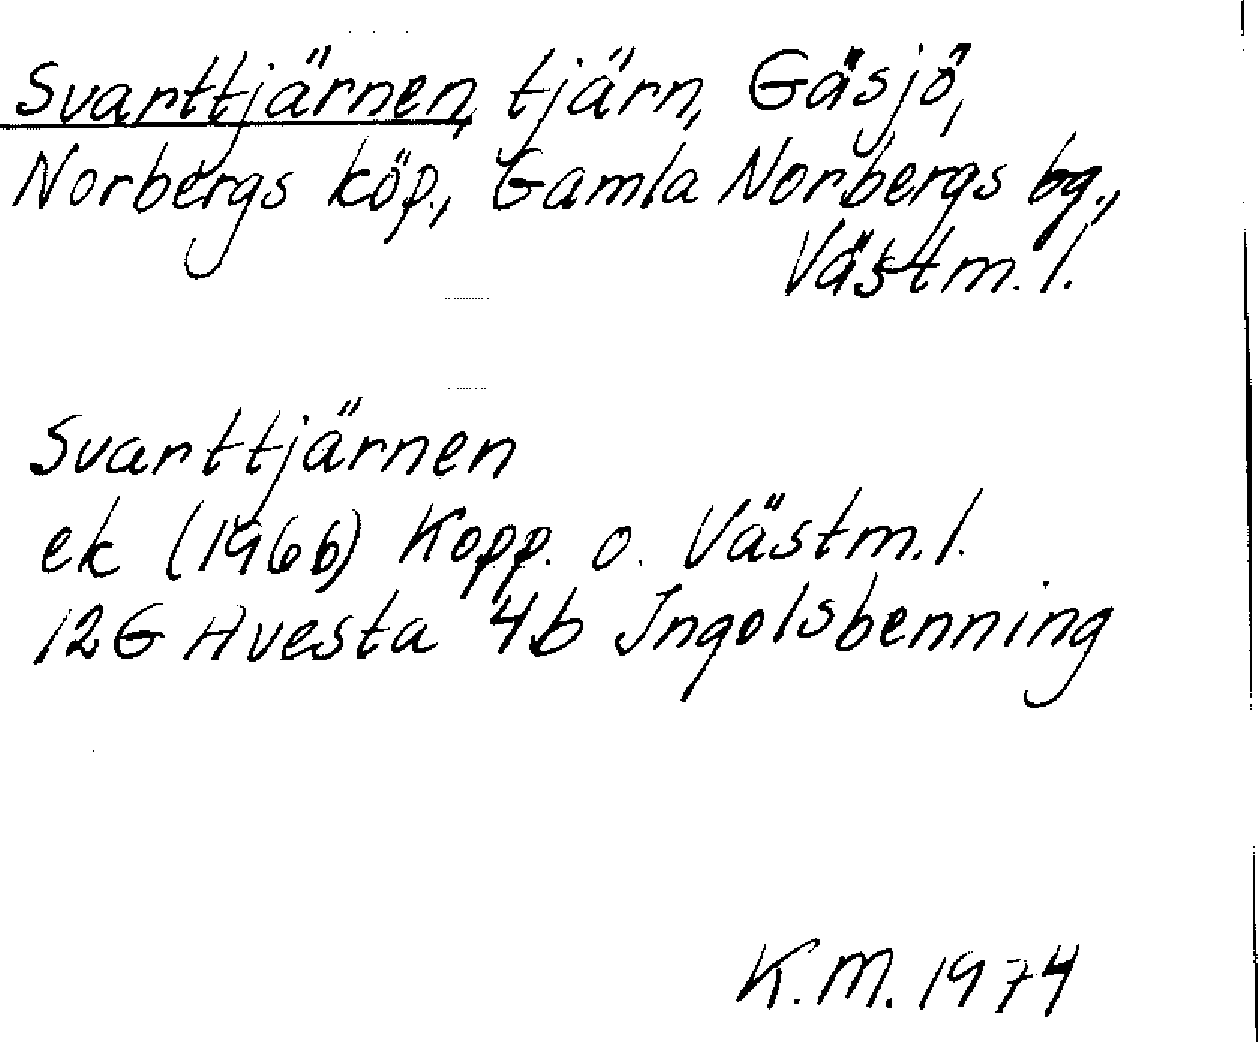 Svarttjärnen, tjärn, Gäsjö,
Norbergs köp., Gamla Norbergs bg.,
Västm. l.
Svarttjärnen
ek (1966) Kopp. o. Västm. l.
12G Avesta 4b Ingolsbenning
K.M. 1974